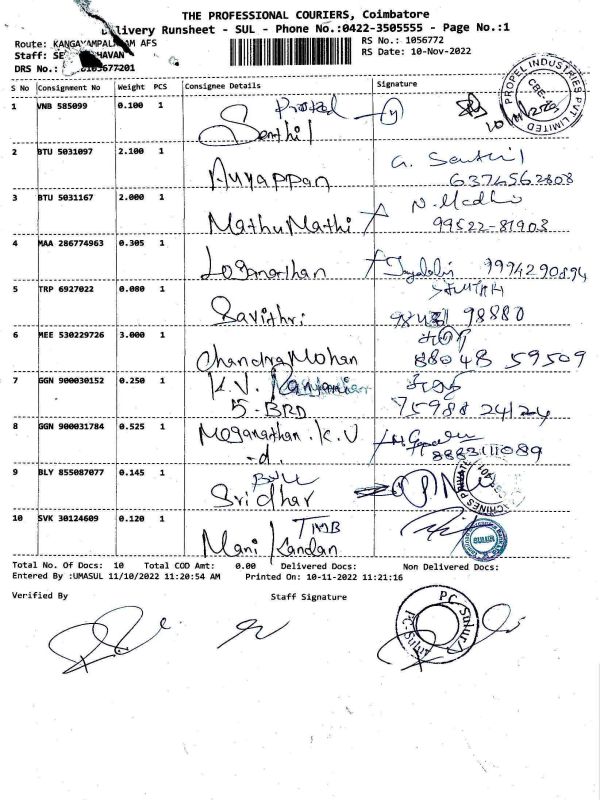 THE PROFESSIONAL COURIERS, Coimbatore
Delivery Runsheet - SUL - Phone No.:0422-3505555 - Page No.:1
Route: KANGAYAMPALAYAM AFS
RS No.: 1056772
Staff:
RS Date: 10-Nov-2022
DRS No.:
S No Consignment No Weight PCS Consignee Details Signature
PROPEL INDUSTRIES PVT LIMITED
CBE
1 VNB 585099 0.100 1
Senthil
2 BTU 5031097 2.100 1 Ayyappan
G. Senthil
6374562808
3 BTU 5031167 2.000 1 MathuMathi
N. Madhu
99522-81903
4 MAA 286774963 0.305 1 Loganathan
9994290894
5 TRP 6927022 0.080 1 Savithri
98880
6 MEE 530229726 3.000 1 ChandraMohan
88048 59509
7 GGN 900030152 0.250 1 K.V.
5-BRD
75988 24124
8 GGN 900031784 0.525 1 Moganathan.K.V
-d
8883111089
9 BLY 855087077 0.145 1
Sridhar
10 SVK 30124609 0.120 1 TMB
Mani Kandan
SULUR
Total No. Of Docs: 10 Total COD Amt: 0.00 Delivered Docs: Non Delivered Docs:
Entered By :UMASUL 11/10/2022 11:20:54 AM Printed On: 10-11-2022 11:21:16
Verified By Staff Signature
PC Sulur
PC-Sulur